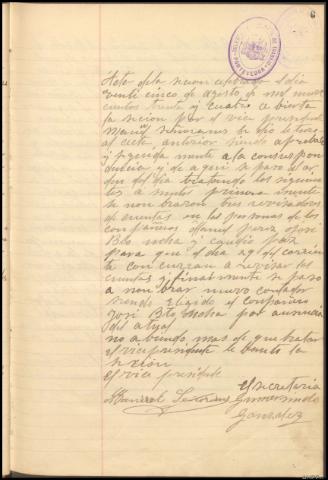 6
Acta de la secion celebrada el dia
veinti cinco de agosto de mil nuve
cientos trenta y cuatro ce bierta
la secion por el vice presidente
Manuel se dio letura
al acta anterior siendo aprobada
y seguida mente a la correspon
dencia y de aqui se paso al or
den del dia tratando los siguien
tes a sunto primera mente
se nonbraron tres revisadores
de cuentas en las personas de los
conpañeros Manuel perez Jose
Bto rocha y paz
para que el dia 29 del corrien
te con curran a revisar las
cuentas y final mente se paso
a nonbrar nuevo contador
siendo elegido el conpañero
José Bto Rocha por ausencia
del atual
no abiendo mas de que tratar
el vicepresidente levanto la
sezion
el vice presidente
el secretario
Manuel
Gumersindo
Gonzalez